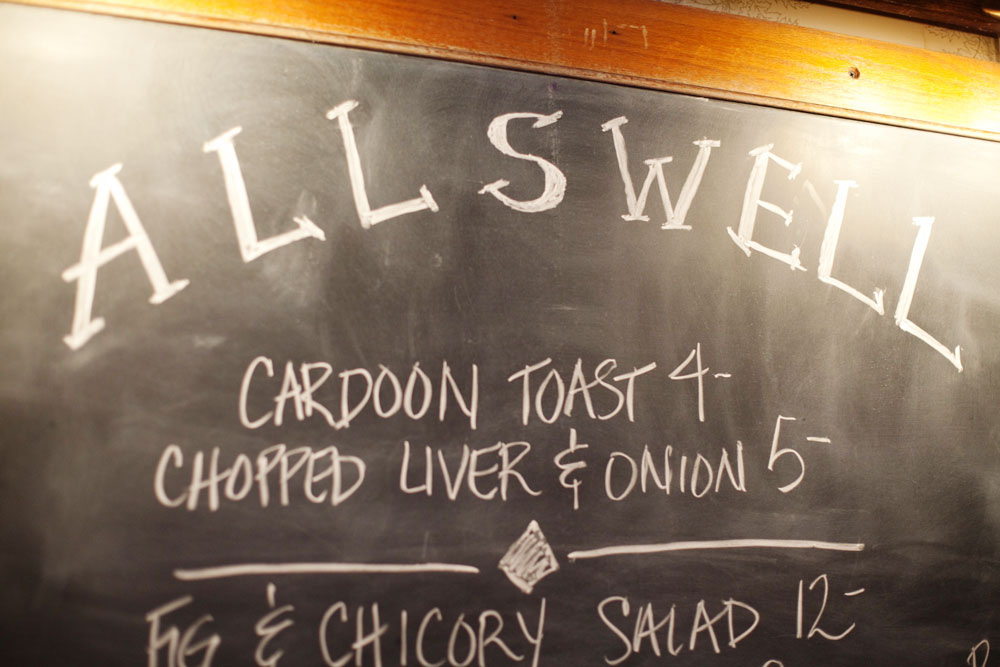 ALLSWELL
CARDOON TOAST 4-
CHOPPED LIVER & ONION 5-
FIG & CHICORY SALAD 12-